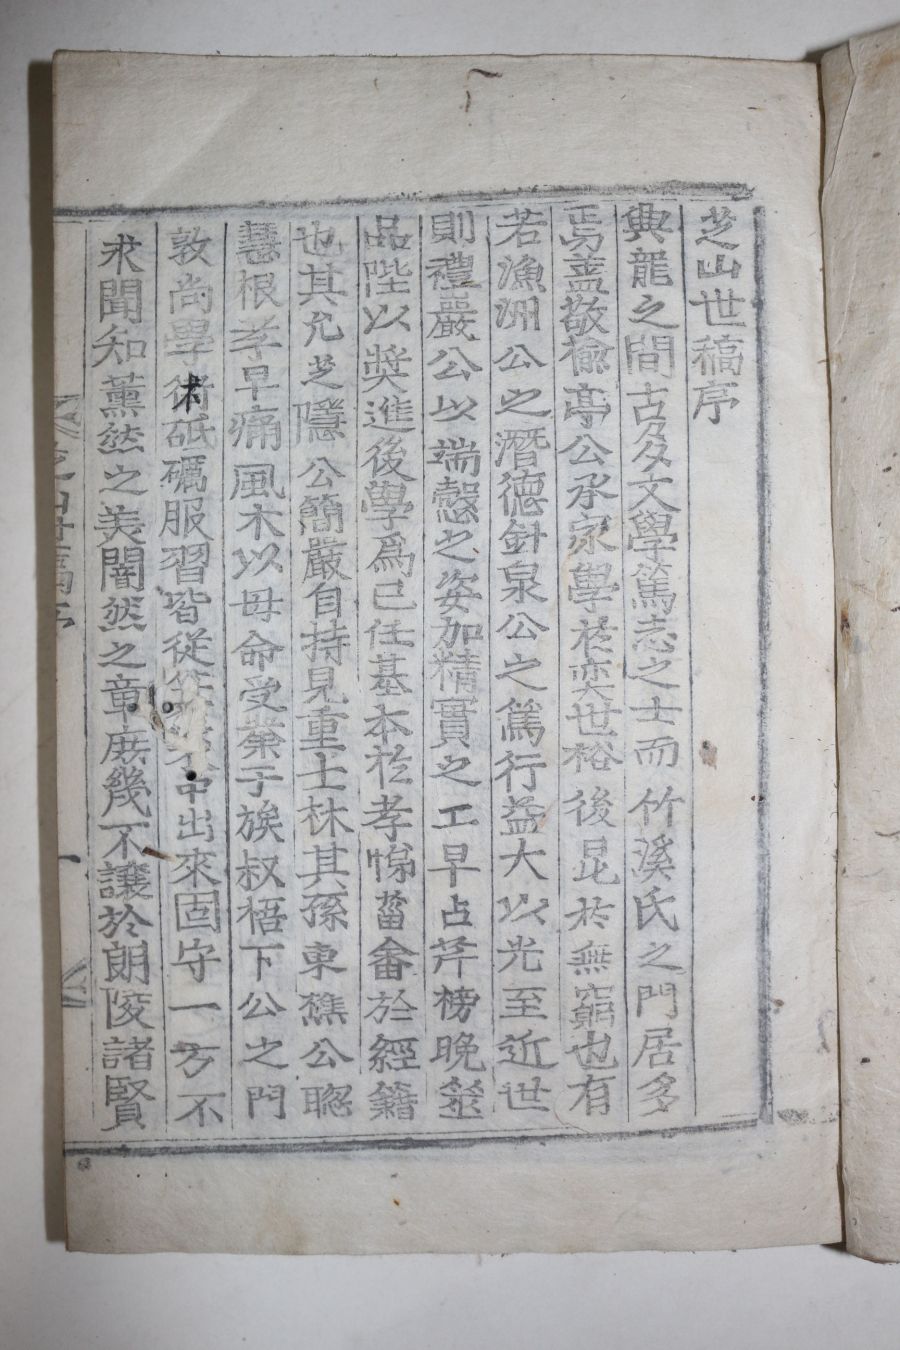 芝山世稿序
典龍之間古多文學篤志之士而竹溪氏之門居多
焉盖敬檢亭公承家學於奕世裕後昆於無窮也有
若漁洲公之潛德針泉公之篤行益大以光至近世
則禮巖公以端慤之姿加精實之工早占芹榜晩筮
品陛以奬進後學爲己任基本於孝悌菑畬於經籍
也其允芝隱公簡嚴自持見重士林其孫東樵公聰
慧根孝早痛風木以母命受業于族叔梧下公之門
敦尚學術砥礪服習皆從中出來固守一方不
求聞知薰然之美闇然之章庶幾不讓於朗陵諸賢
芝山世稿序
一